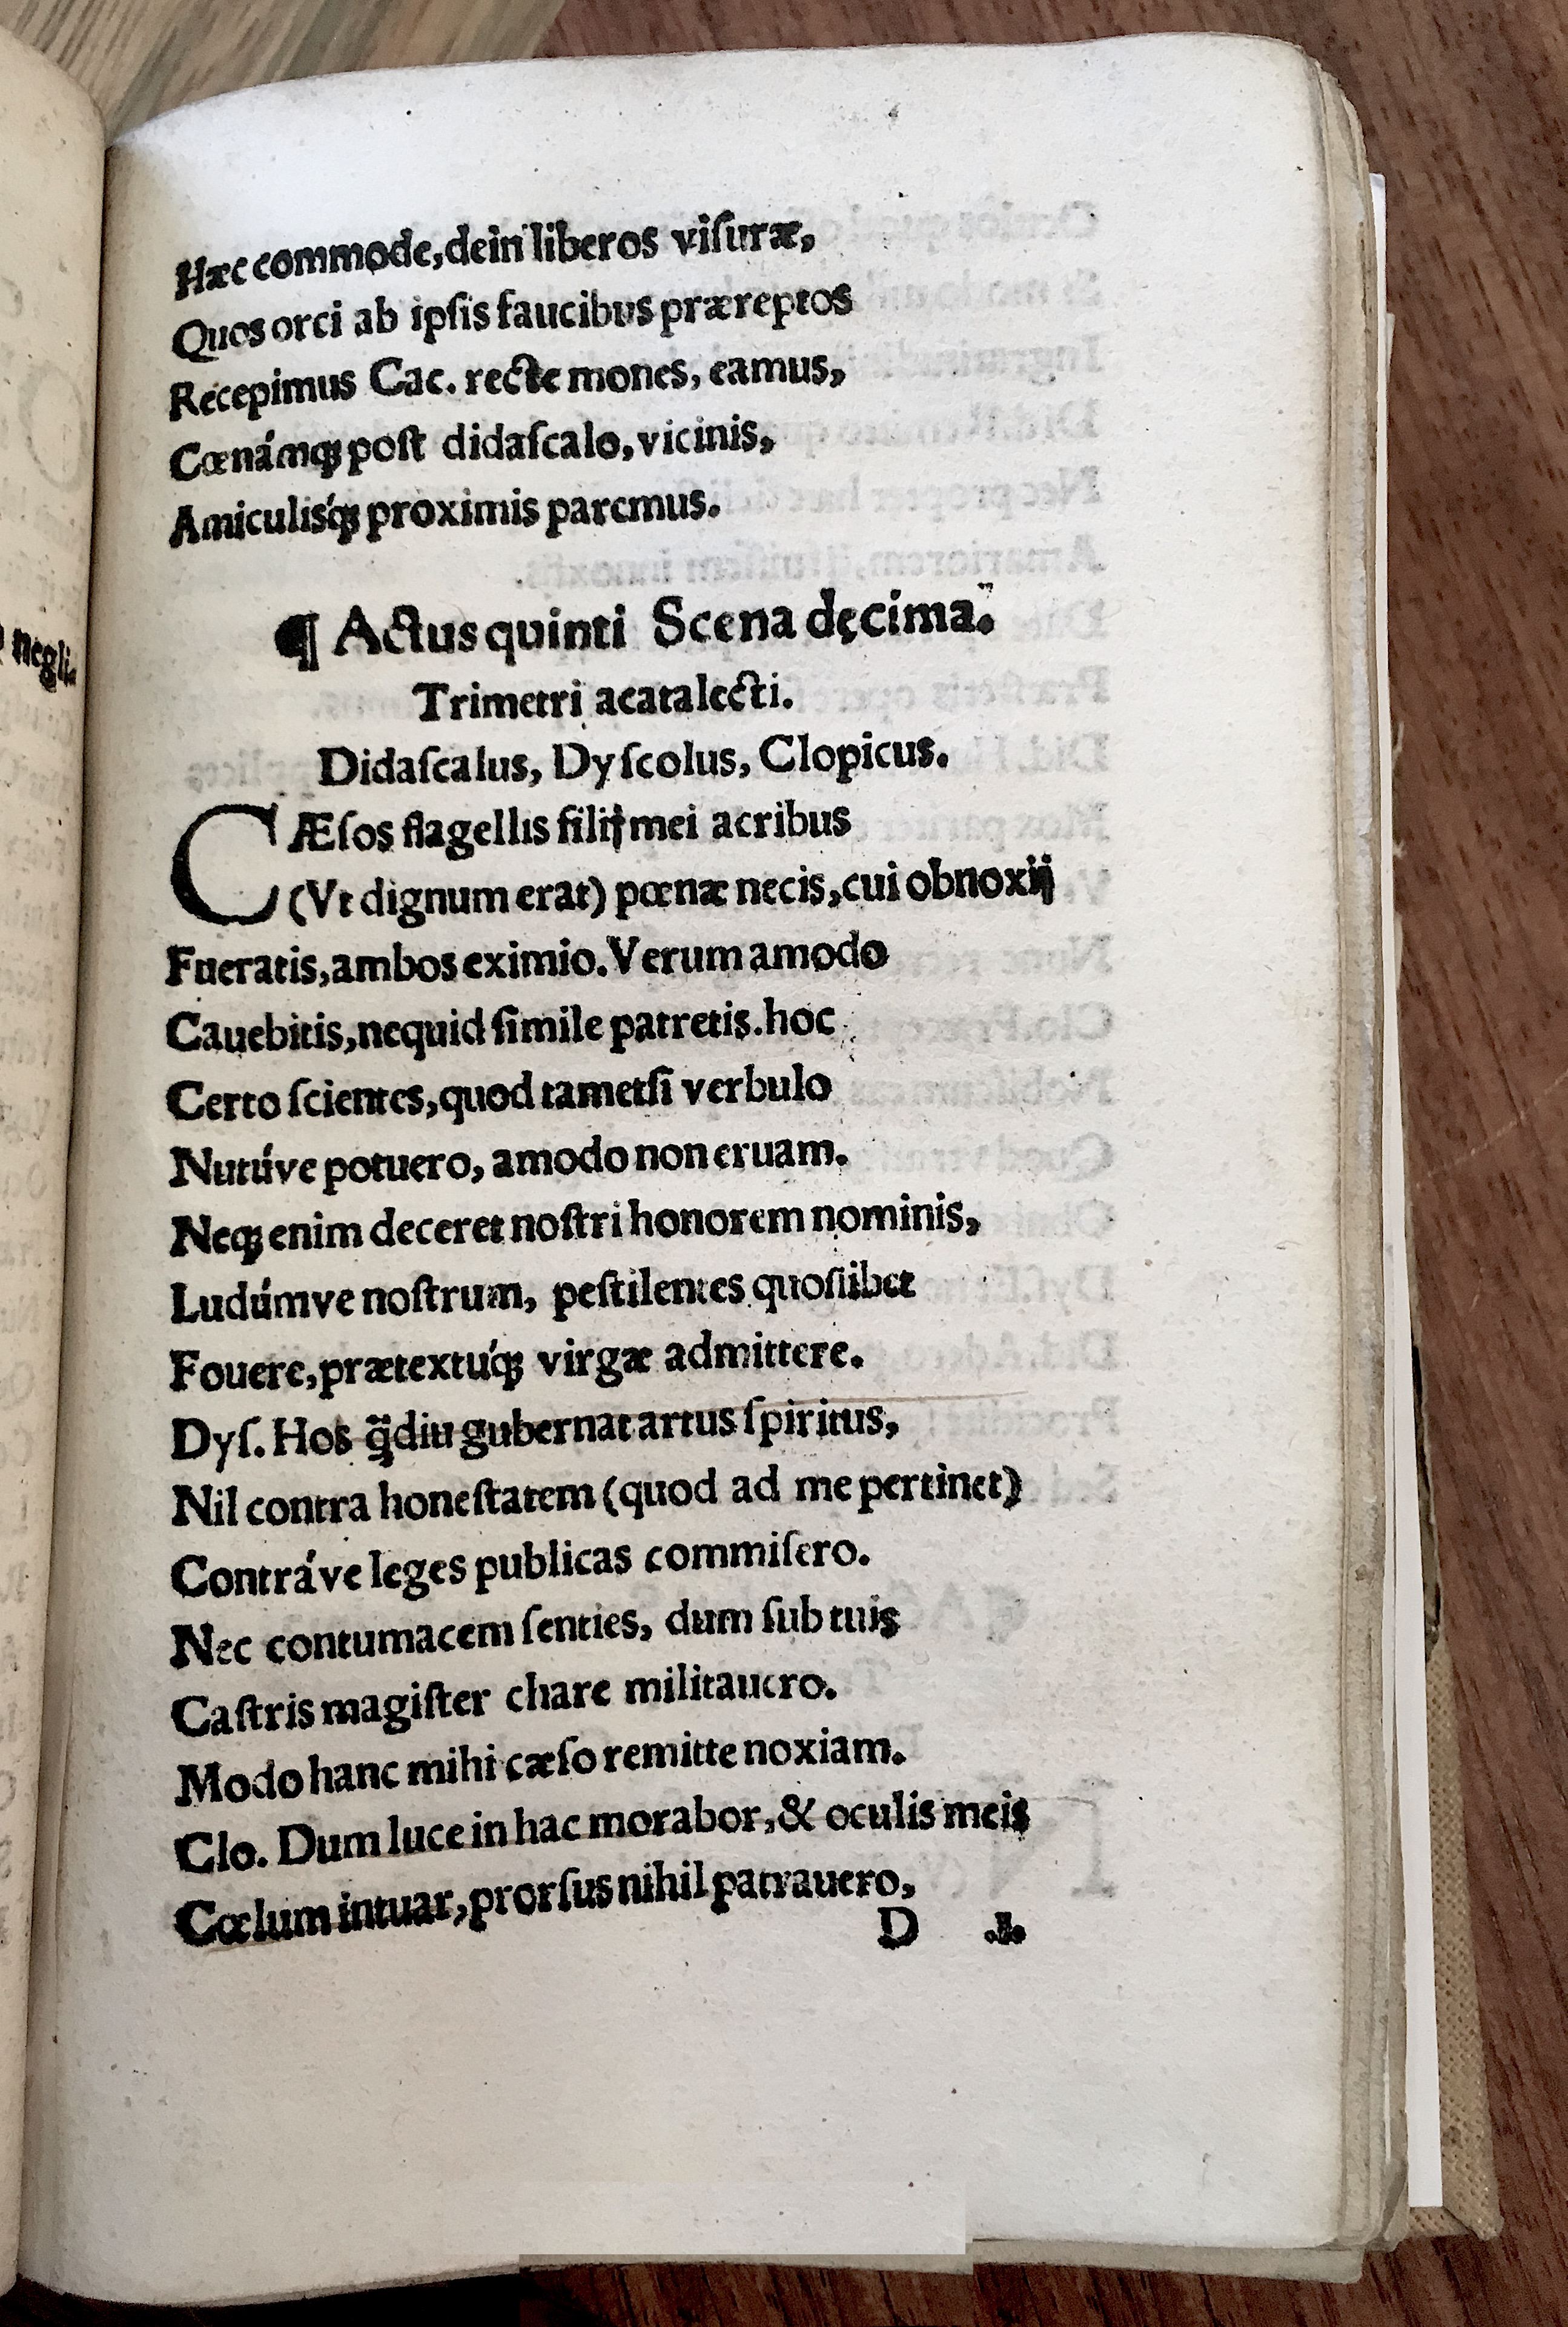 Hæc commode, dein liberos viſuræ,
Quos orci ab ipſis faucibus præreptos
Recepimus Cac. recte mones, eamus,
Cœnámqꝫ poſt didaſcalo, vicinis,
Amiculiſqꝫ́ proximis paremus.
¶ Actus quinti Scena dęcima.
Trimetri acatalecti.
Didaſcalus, Dyſcolus, Clopicus.
CÆſos flagellis filij mei acribus
(Vt dignum erat) pœnæ necis, cui obnoxij
Fueratis, ambos eximio. Verum amodo
Cauebitis, nequid ſimile patretis. hoc
Certo ſcientes, quod tametſi verbulo
Nutúve potuero, amodo non eruam.
Neqꝫ enim deceret noſtri honorem nominis,
Ludúmve noſtrum, peſtilentes quoſlibet
Fouere, prætextúqꝫ virgæ admittere.
Dyſ. Hos q̃diu gubernat artus ſpiritus,
Nil contra honeſtatem (quod ad me pertinet)
Contráve leges publicas commiſero.
Nec contumacem ſenties, dum ſub tuis
Caſtris magiſter chare militauero.
Modo hanc mihi cæſo remitte noxiam.
Clo. Dum luce in hac morabor, & oculis meis
Cœlum intuar, prorſus nihil patrauero,
D .I.
negli-